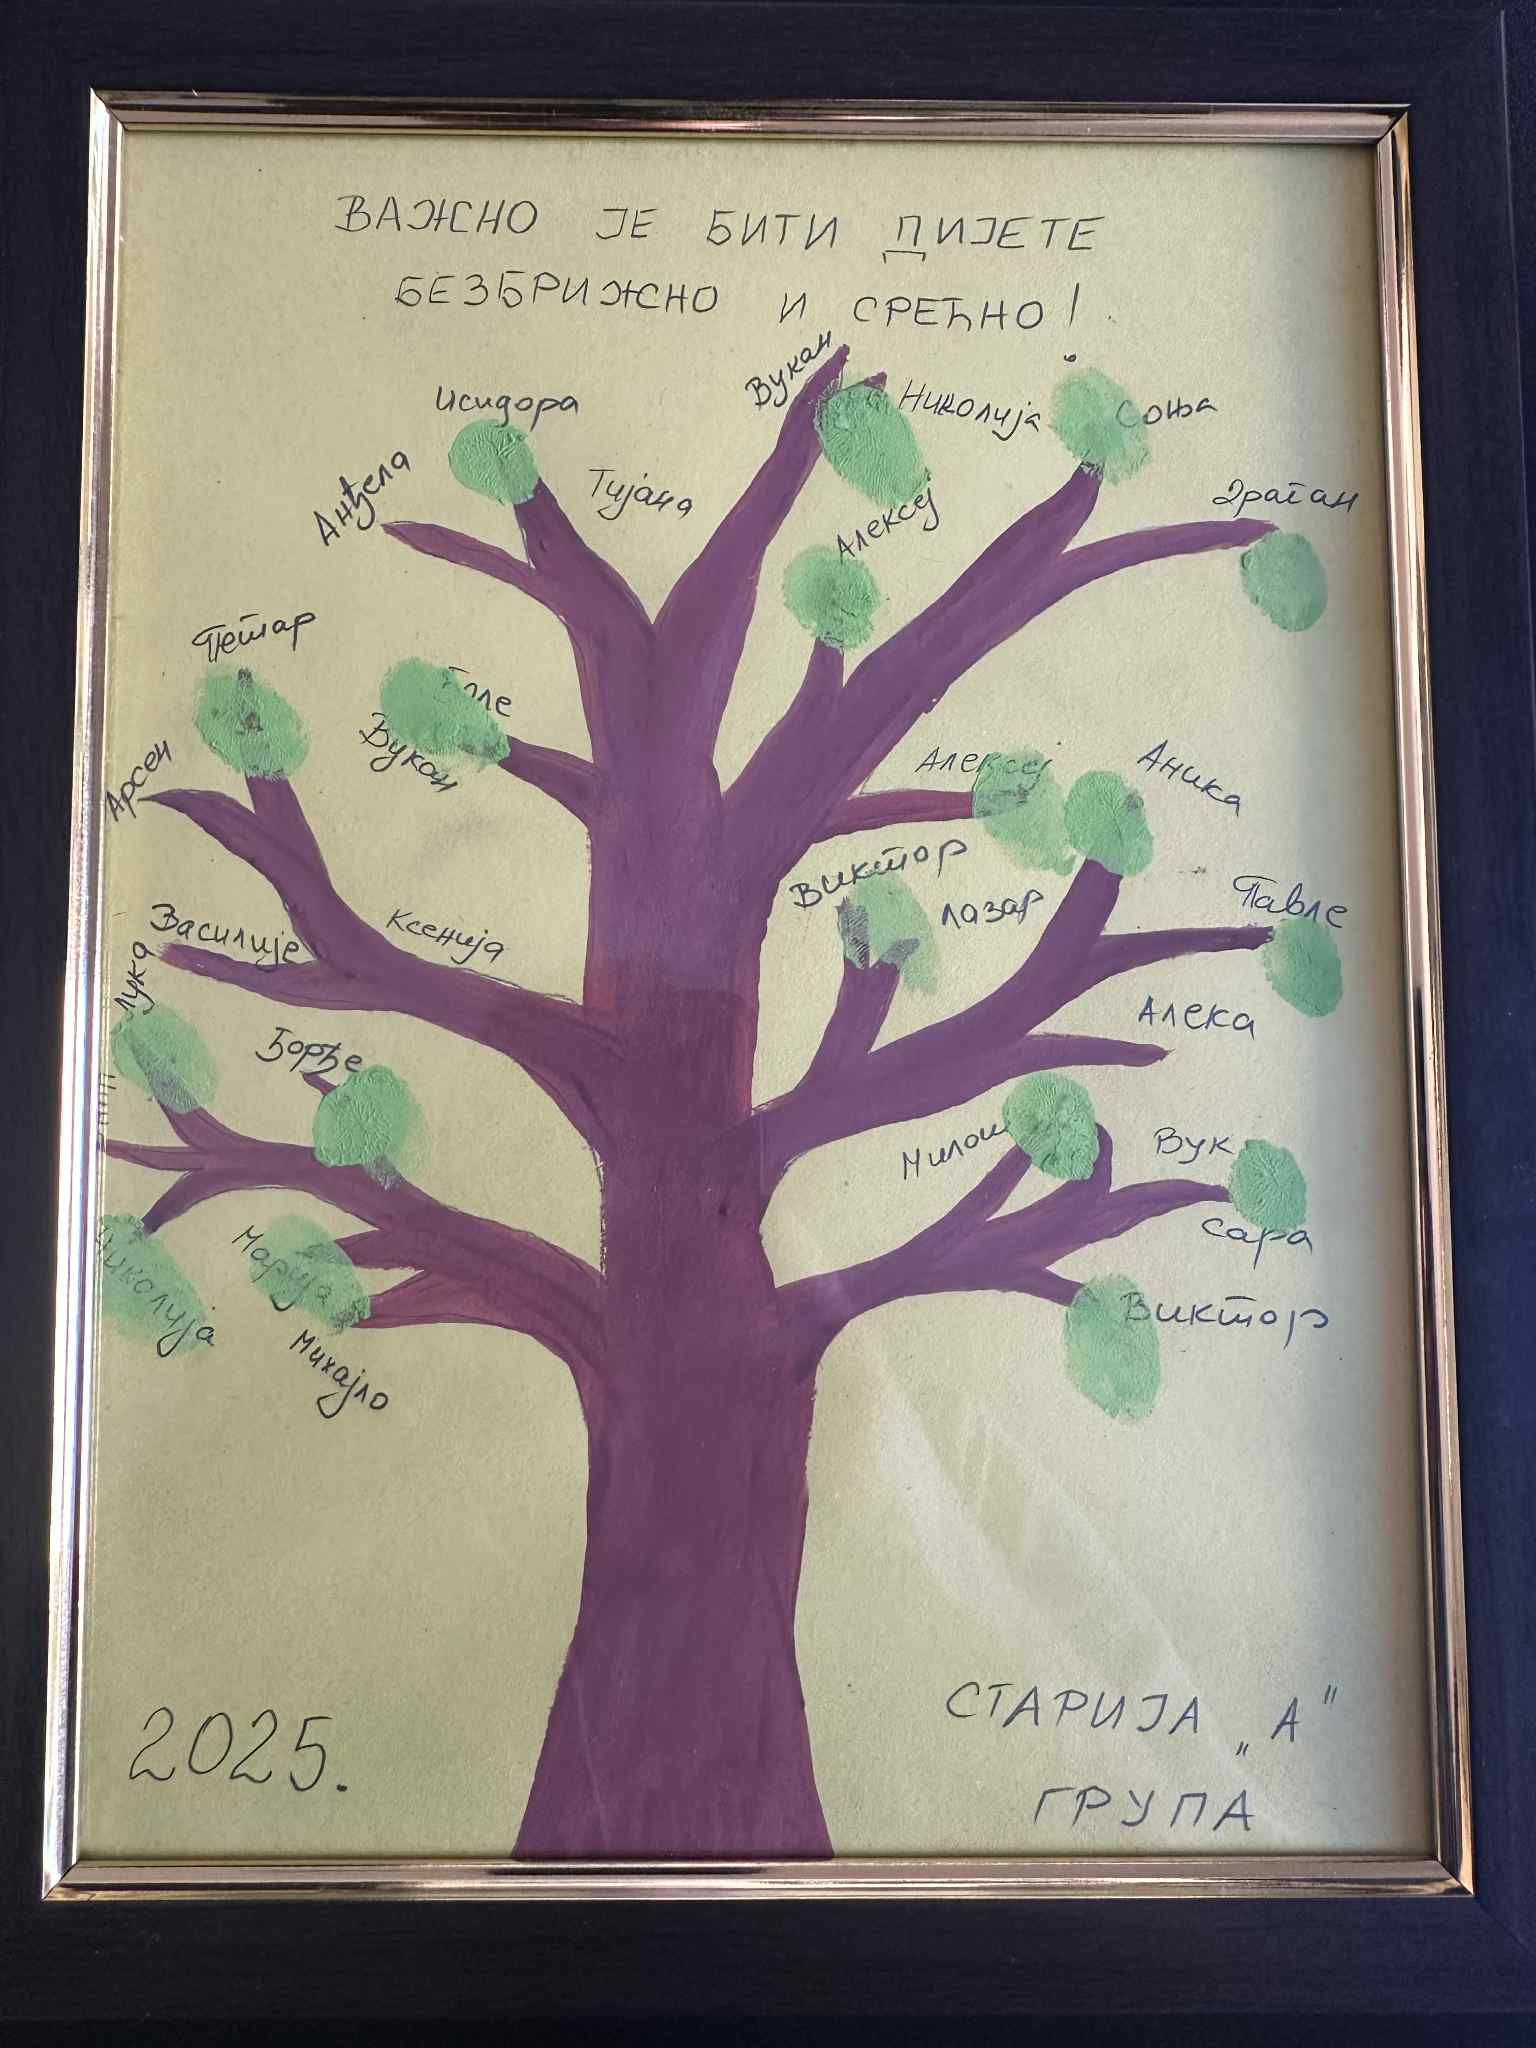 ВАЖНО ЈЕ БИТИ ДИЈЕТЕ
БЕЗБРИЖНО И СРЕЋНО!
Вукан
Исидора
Николија
Соња
Анђела
Тијана
Драган
Алексеј
Петар
Вукан
Арсен
Алексеј
Аника
Виктор
Лазар
Павле
Василије
Ксенија
Лука
Алека
Ђорђе
Милош
Вук
Сара
Марија
Николија
Виктор
Михајло
СТАРИЈА „А"
2025.
ГРУПА